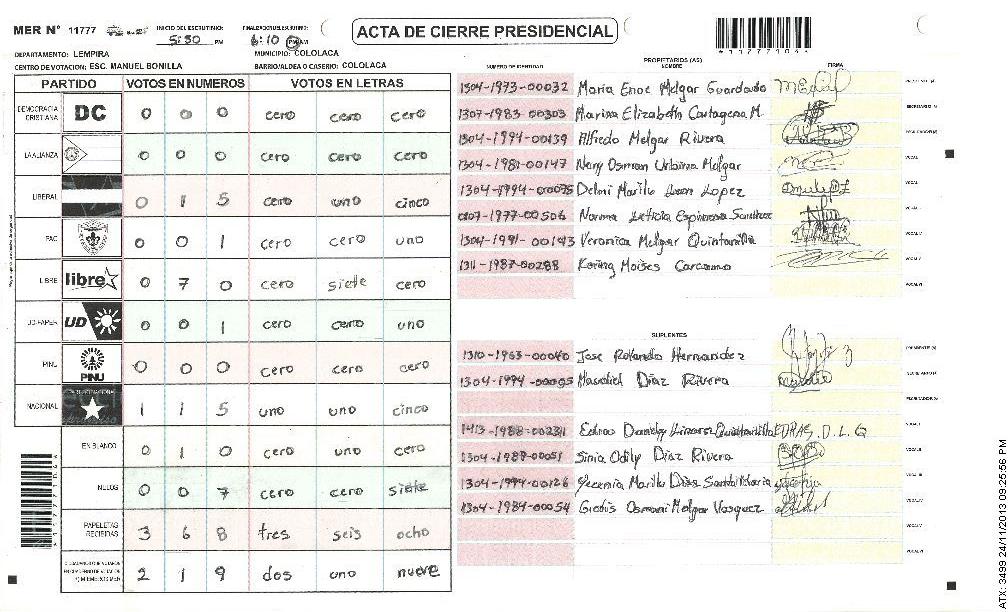 MER Nº 11777 INICIO DEL ESCRUTINIO: 5:30 PM FINALIZACION ESCRUTINIO: 6:10 PM AM
ACTA DE CIERRE PRESIDENCIAL
1177771044
DEPARTAMENTO: LEMPIRA MUNICIPIO: COLOLACA
CENTRO DE VOTACION: ESC. MANUEL BONILLA BARRIO/ALDEA O CASERIO: COLOLACA
PARTIDO VOTOS EN NUMEROS VOTOS EN LETRAS
DEMOCRACIA CRISTIANA DC 0 0 0 cero cero cero
LA ALIANZA 0 0 0 cero cero cero
LIBERAL 0 1 5 cero uno cinco
PAC 0 0 1 cero cero uno
LIBRE libre 0 7 0 cero siete cero
UD-FAPER UD 0 0 1 cero cero uno
PINU PINU 0 0 0 cero cero cero
NACIONAL 1 1 5 uno uno cinco
EN BLANCO 0 1 0 cero uno cero
NULOS 0 0 7 cero cero siete
PAPELETAS RECIBIDAS 3 6 8 tres seis ocho
2 1 9 dos uno nueve
NUMERO DE IDENTIDAD PROPIETARIOS (AS) NOMBRE FIRMA
1304-1973-00032 Maria Enoe Melgar Guardado
1307-1983-00303 Marina Elizabeth Cartagena M.
1304-1994-00139 Alfredo Melgar Rivera
1304-1981-00147 Nery Osman Urbina Melgar VOCAL I
1304-1994-00075 Delmi Marilu Lopez
0107-1977-00506 Norma Leticia Espinoza
1304-1991-00143 Veronica Melgar Quintanilla
1311-1987-00288 Moises Carcamo
SUPLENTES
1310-1963-00040 Jose Rolando Hernandez
1304-1994-00095 Diaz Rivera
1413-1988-00231 EDRAS. D. L. Q
1304-1987-00051 Sinia Odily Diaz Rivera
1304-1994-00126 Yecenia Marilu Diaz
1304-1984-00054 Osmani Melgar Vasquez
ATX: 3499 24/11/2013 09:25:56 PM